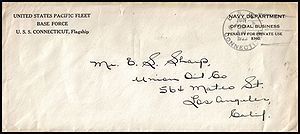 UNITED STATES PACIFIC FLEET
BASE FORCE
U. S. S. CONNECTICUT, Flagship
NAVY DEPARTMENT
OFFICIAL BUSINESS
PENALTY FOR PRIVATE USE
$300.
CONNECTICUT
Mr. B. L. Sharp,
Union Oil Co
564 Mateo St.
Los Angeles,
Calif.